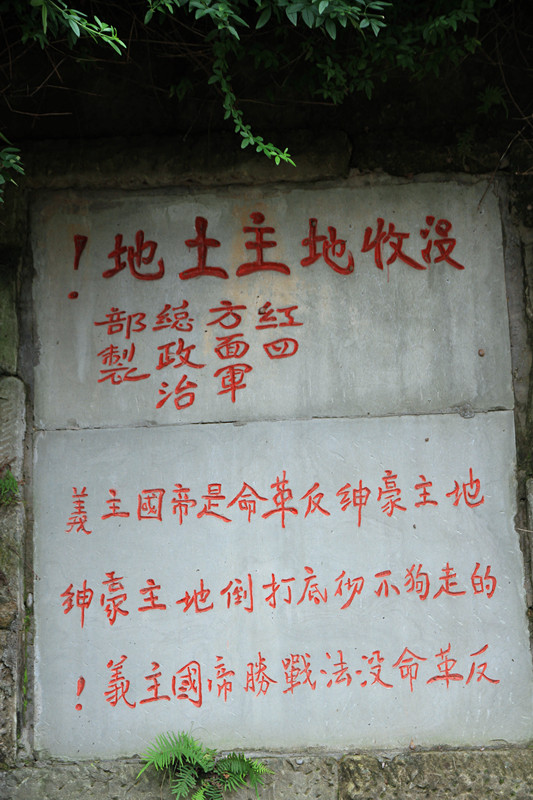 没收地主土地！
紅四
方面軍
総政治
部製
地主豪紳反革命是帝國主義
的走狗不彻底打倒地主豪紳
反革命没法戰勝帝國主義！